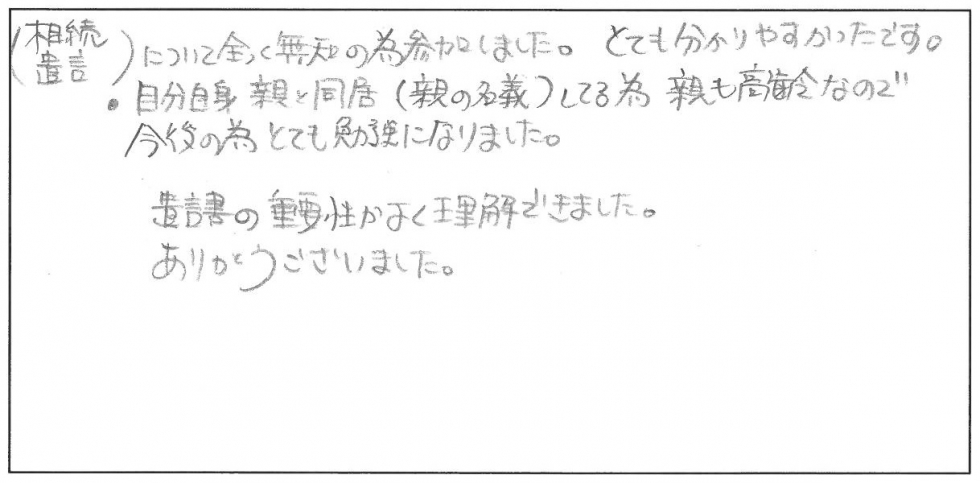 (相続
遺言)について全く無知の為参加しました。 とても分かりやすかったです。
・自分自身 親と同居 (親の名義)してる為 親も高齢なので
今後の為とても勉強になりました。
遺言書の重要性がよく理解できました。
ありがとうございました。